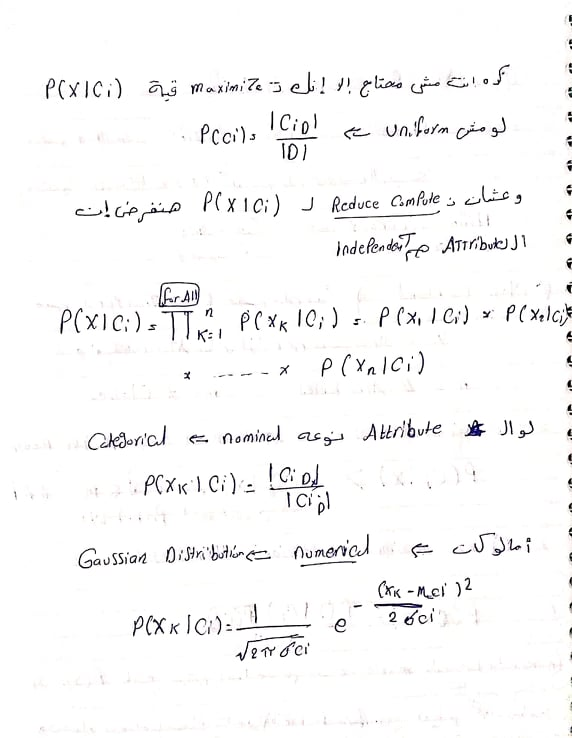 كده انت مش محتاج إلا إنك تـ maximize قيمة P(X|Ci)
لو مش uniform ⇐ P(Ci) = |CiD| / |D|
وعشان نـ Reduce Compute لـ P(X|Ci) هنفرض إن
الـ Attribute هم Independent
For All
P(X|Ci) = ∏ⁿ K=1 P(XK|Ci) = P(X1|Ci) × P(X2|Ci)
× ----- × P(Xn|Ci)
لو الـ Attribute نوعه nominal ⇐ Categorical
P(XK|Ci) = |CiD| / |CiD|
أما لو كانت ⇐ numerical ⇐ Gaussian Distribution
P(XK|Ci) = 1 / √2π σCi e^ -(XK - MCi)² / 2σCi